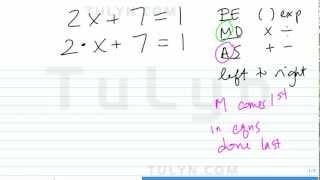 TULYN.COM
2x + 7 = 1
2·x + 7 = 1
PE ( ) exp
MD × ÷
AS + −
left to right
TuLyn
M comes 1st
in eqns
done last
TULYN.COM